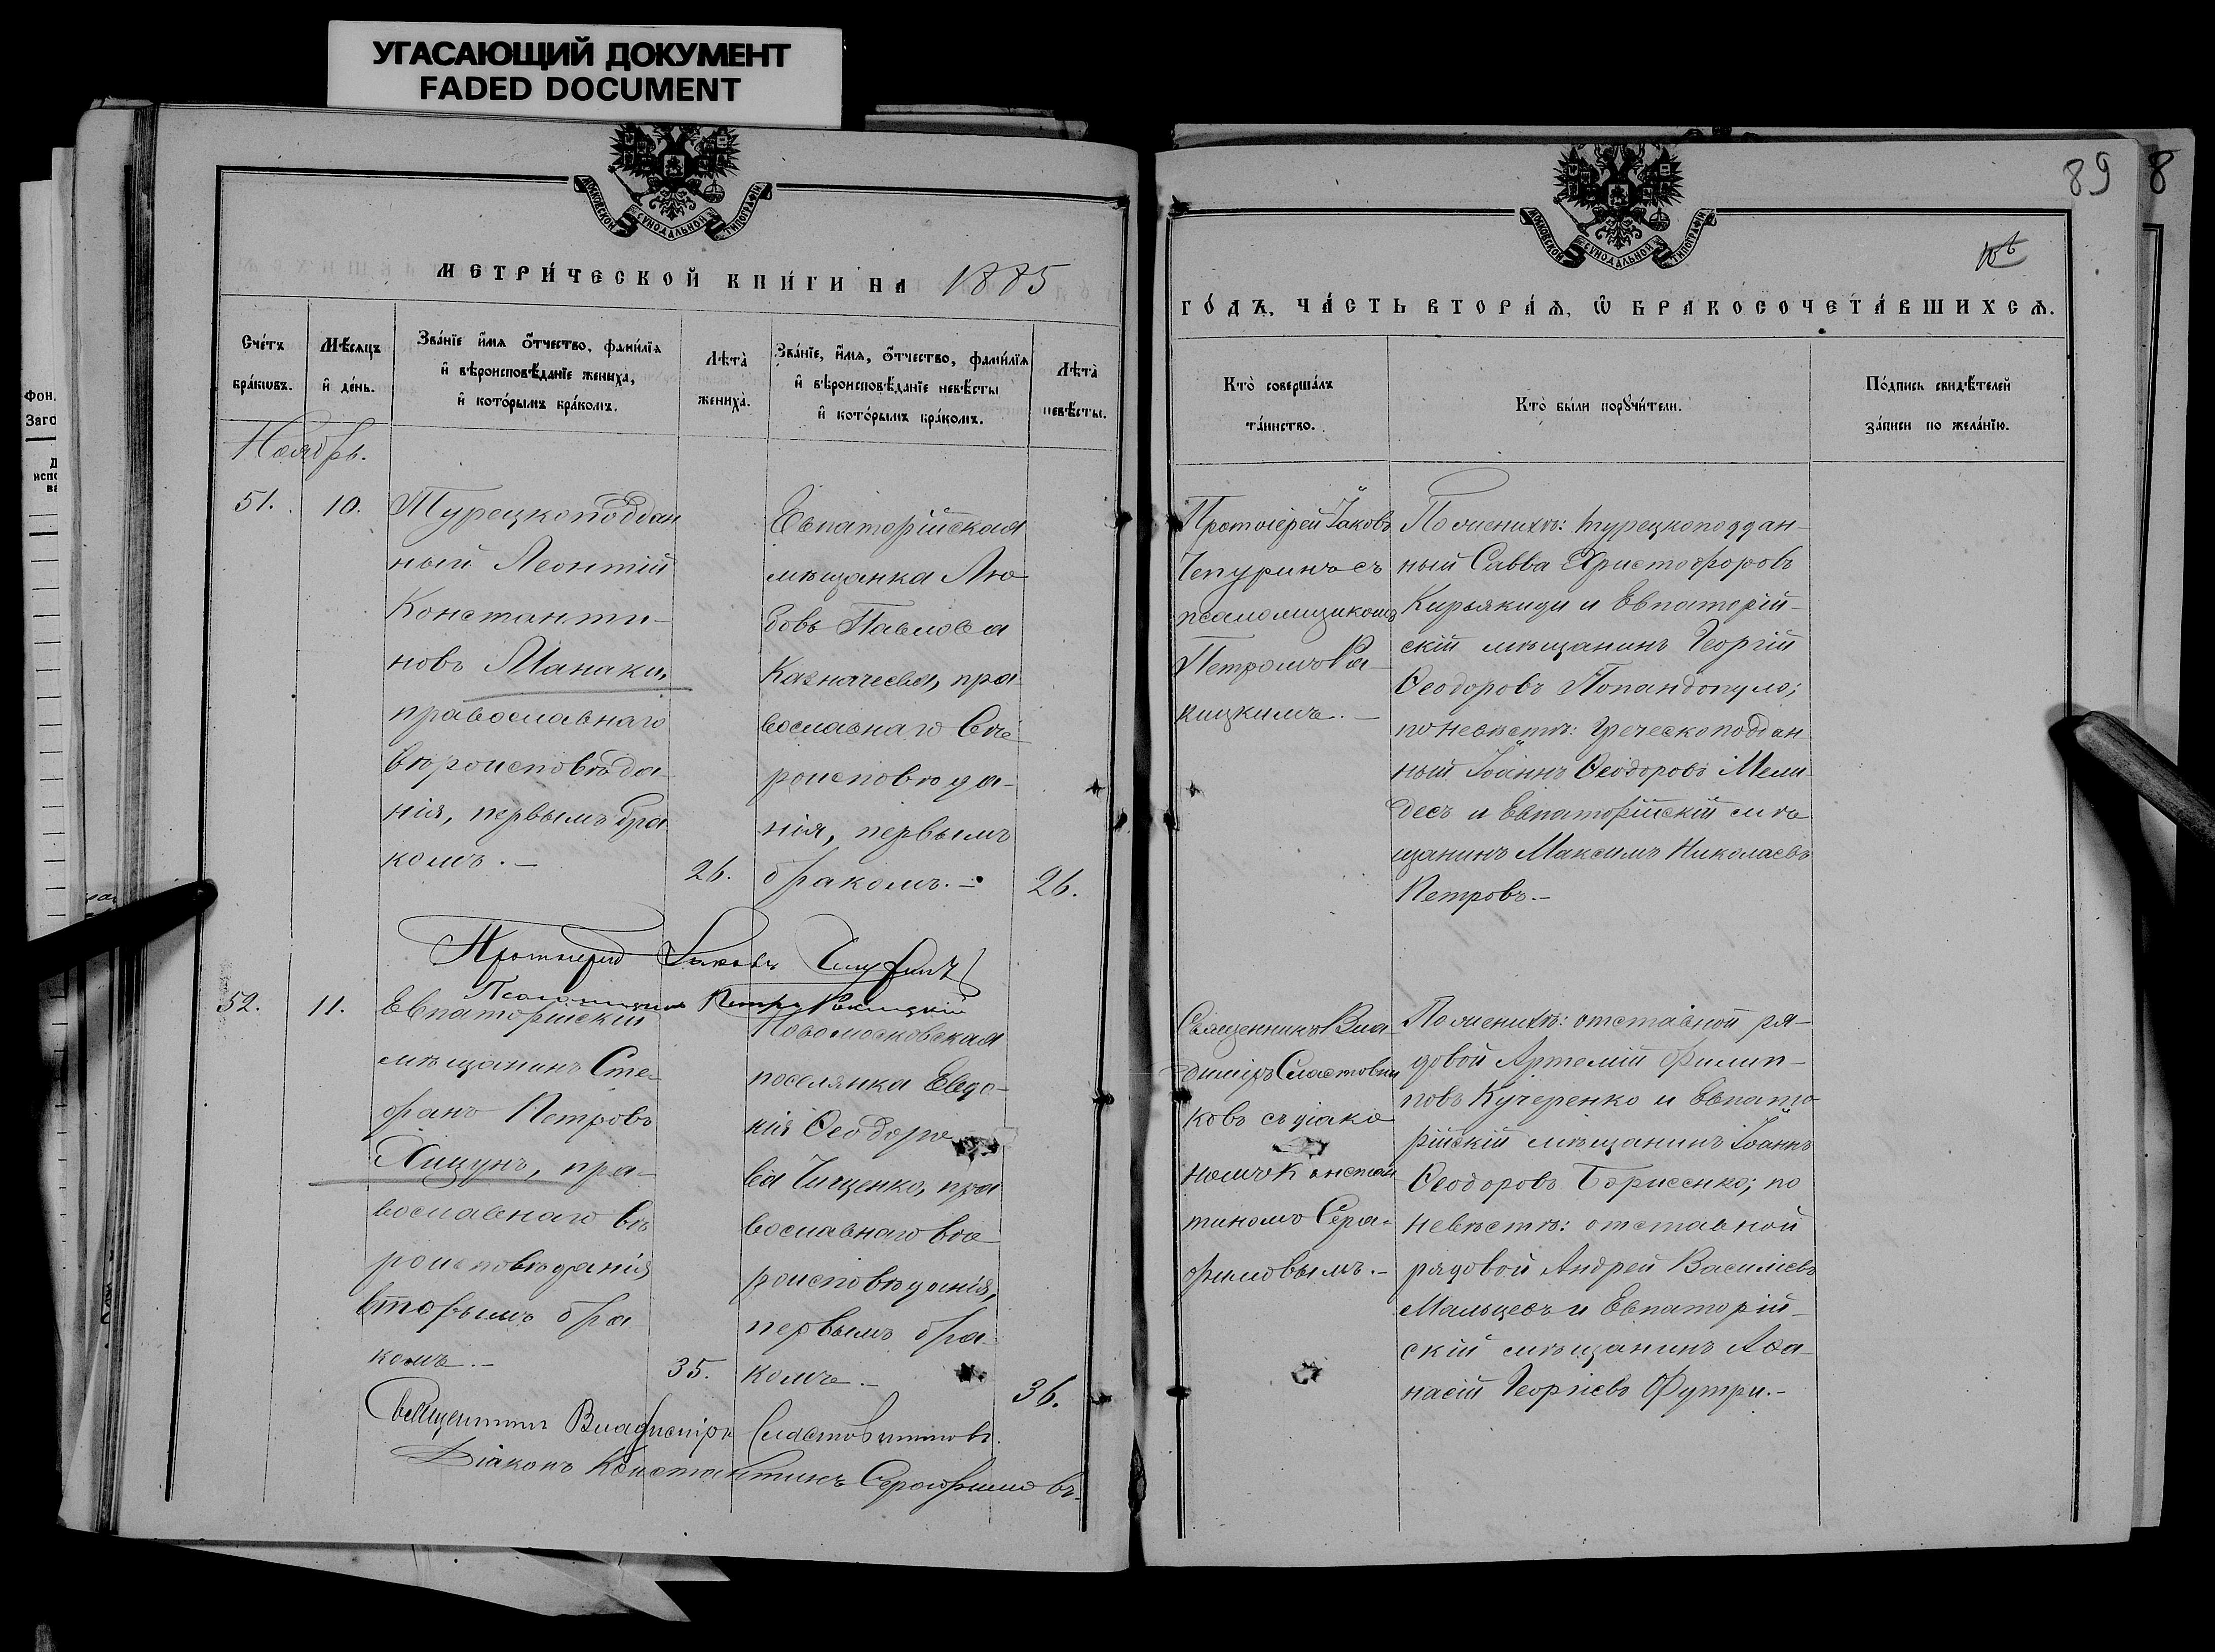 УГАСАЮЩИЙ ДОКУМЕНТ
FADED DOCUMENT
МОСКОВСКОЙ СѴНОДАЛЬНОЙ ТИПОГРАФІИ
МЕТРИ́ЧЕСКОЙ КНИ́ГИ НА 1885
Сче́тъ
бра́ковъ.
Мѣ́сяцъ
и҆ де́нь.
Зва́нїе и҆́мя ѻ҆́тчество, фами́лїя
и҆ вѣроисповѣ́данїе жениха̀,
и҆ кото́рымъ бра́комъ.
Лѣта̀
жениха̀.
Зва́нїе, и҆́мя, ѻ҆́тчество, фами́лїя
и҆ вѣроисповѣ́данїе невѣ́сты
и҆ кото́рымъ бра́комъ.
Лѣта̀
невѣ́сты.
Ноябрь.
51.
10.
Турецкоподдан
ный Леонтій
Константи-
новъ Манаки,
православнаго
вѣроисповѣда-
нія, первымъ бра
комъ.-
26.
Евпаторійская
мѣщанка Лю
бовь Павлова
Казначеева, пра
вославнаго вѣ-
роисповѣда-
нія, первымъ
бракомъ.-
26.
Протоіерей Іаковъ Чепуринъ
Псаломщикъ Петръ Ракицкій
52.
11.
Евпаторійскій
мѣщанинъ Сте-
фанъ Петровъ
Хицунъ, пра-
вославнаго вѣ
роисповѣданія,
вторымъ бра
комъ.-
35.
Новомосковская
поселянка Евдо-
кія Ѳеодоро-
ва Чищенко, пра
вославнаго вѣ-
роисповѣданія,
первымъ бра-
комъ.-
36.
Священникъ Владиміръ Сластовниковъ.
Діаконъ Константинъ Серафимовъ.
89
8
МОСКОВСКОЙ СѴНОДАЛЬНОЙ ТИПОГРАФІИ
ГО́ДЪ, ЧА́СТЬ ВТОРА́Я, Ѡ҆ БРАКОСОЧЕТА́ВШИХСЯ.
Кто̀ соверша́лъ
та́инство.
Кто̀ бы́ли порꙋчи́тели.
По́дпись свидѣ́телей
за́писи по жела́нїю.
Протоіерей Іаковъ
Чепуринъ съ
псаломщикомъ
Петромъ Ра-
кицкимъ.-
По женихѣ: турецкоподдан-
ный Савва Христофоровъ
Кирьякиди и Евпаторій-
скій мѣщанинъ Георгій
Ѳеодоровъ Попандопуло;
по невѣстѣ: греческоподдан
ный Іоаннъ Ѳеодоровъ Мели-
десъ и Евпаторійскій мѣ
щанинъ Максимъ Николаевъ
Петровъ.-
Священникъ Вла
диміръ Сластовни
ковъ съ діако
номъ Констан
тиномъ Сера-
фимовымъ.-
По женихѣ: отставной ря-
довой Артемій Филип-
повъ Кучеренко и Евпато
рійскій мѣщанинъ Іоаннъ
Ѳеодоровъ Борисенко; по
невѣстѣ: отставной
рядовой Андрей Василіевъ
Мальцевъ и Евпаторій-
скій мѣщанинъ Аѳа-
насій Георгіевъ Футри.-
фон.
Заго